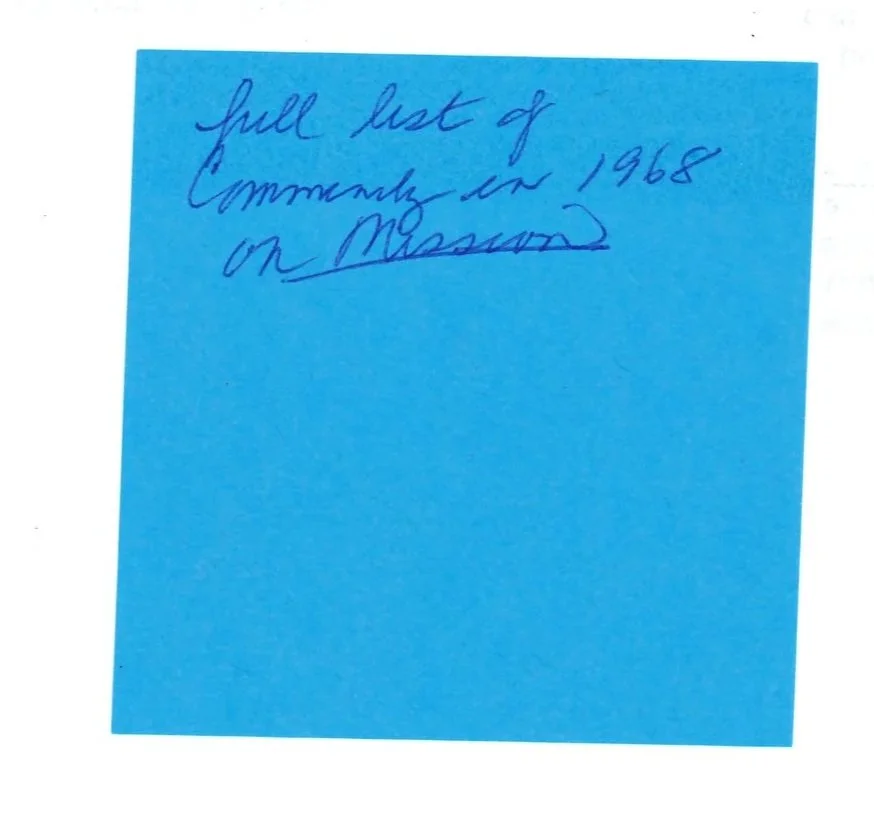 full list of
Community in 1968
on Mission